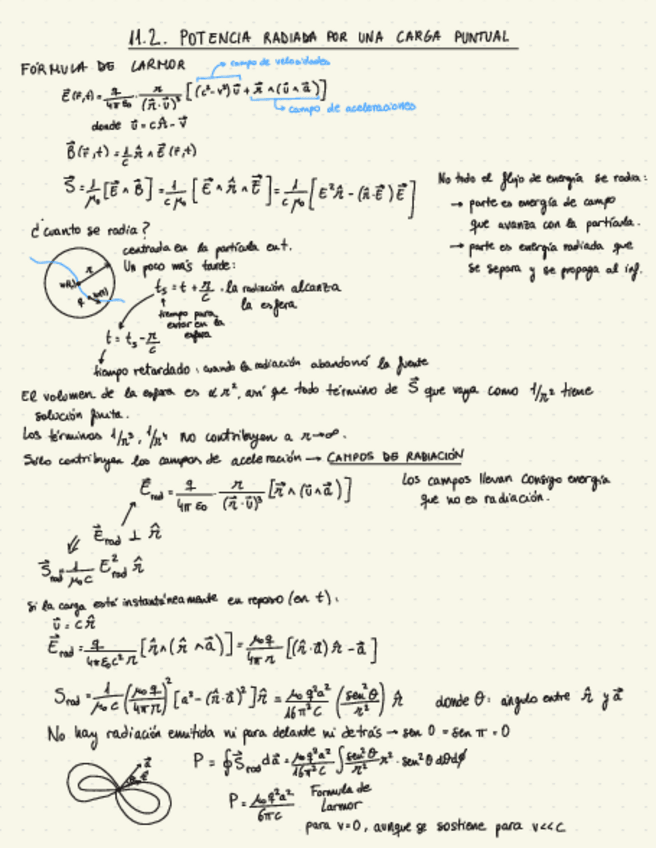 11.2. POTENCIA RADIADA POR UNA CARGA PUNTUAL
FÓRMULA DE LARMOR
campo de velocidades
E⃗(r⃗,t) = q/4πε₀ · r/(r⃗·u⃗)³ [(c²-v²)u⃗ + r⃗ ∧ (u⃗ ∧ a⃗)]
campo de aceleraciones
donde u⃗ = c r̂ - v⃗
B⃗(r⃗,t) = 1/c r̂ ∧ E⃗(r⃗,t)
S⃗ = 1/μ₀ [E⃗ ∧ B⃗] = 1/cμ₀ [E⃗ ∧ r̂ ∧ E⃗] = 1/cμ₀ [E² r̂ - (r̂·E⃗) E⃗]
No todo el flujo de energía se radia:
→ parte es energía de campo
que avanza con la partícula.
→ parte es energía radiada que
se separa y se propaga al inf.
¿cuanto se radia?
centrada en la partícula en t.
Un poco más tarde:
tₛ = t + r/c · la radiación alcanza
la esfera
tiempo para
estar en la
esfera
t = tₛ - r/c
tiempo retardado, cuando la radiación abandonó la fuente
El volumen de la esfera es α r², así que todo término de S⃗ que vaya como 1/r² tiene
solución finita.
Los términos 1/r³, 1/r⁴ no contribuyen a r→∞.
Sólo contribuyen los campos de aceleración → CAMPOS DE RADIACIÓN
E⃗rad = q/4πε₀ r/(r⃗·u⃗)³ [r⃗ ∧ (u⃗ ∧ a⃗)]
Los campos llevan consigo energía
que no es radiación.
E⃗rad ⊥ r̂
S⃗rad = 1/μ₀c E²rad r̂
Si la carga está instantáneamente en reposo (en t):
u⃗ = c r̂
E⃗rad = q/4πε₀c²r [r̂ ∧ (r̂ ∧ a⃗)] = μ₀q/4πr [(r̂·a⃗) r̂ - a⃗]
Srad = 1/μ₀c (μ₀q/4πr)² [a² - (r̂·a⃗)²] r̂ = μ₀q²a²/16π²c (sen²θ/r²) r̂ donde θ: ángulo entre r̂ y a⃗
No hay radiación emitida ni para delante ni detrás → sen 0 = sen π = 0
a⃗
P = ∮ S⃗rad da⃗ = μ₀q²a²/16π²c ∫ sen²θ/r² r² · sen²θ dθdϕ
P = μ₀q²a²/6πc Formula de
Larmor
para v=0, aunque se sostiene para v<<c